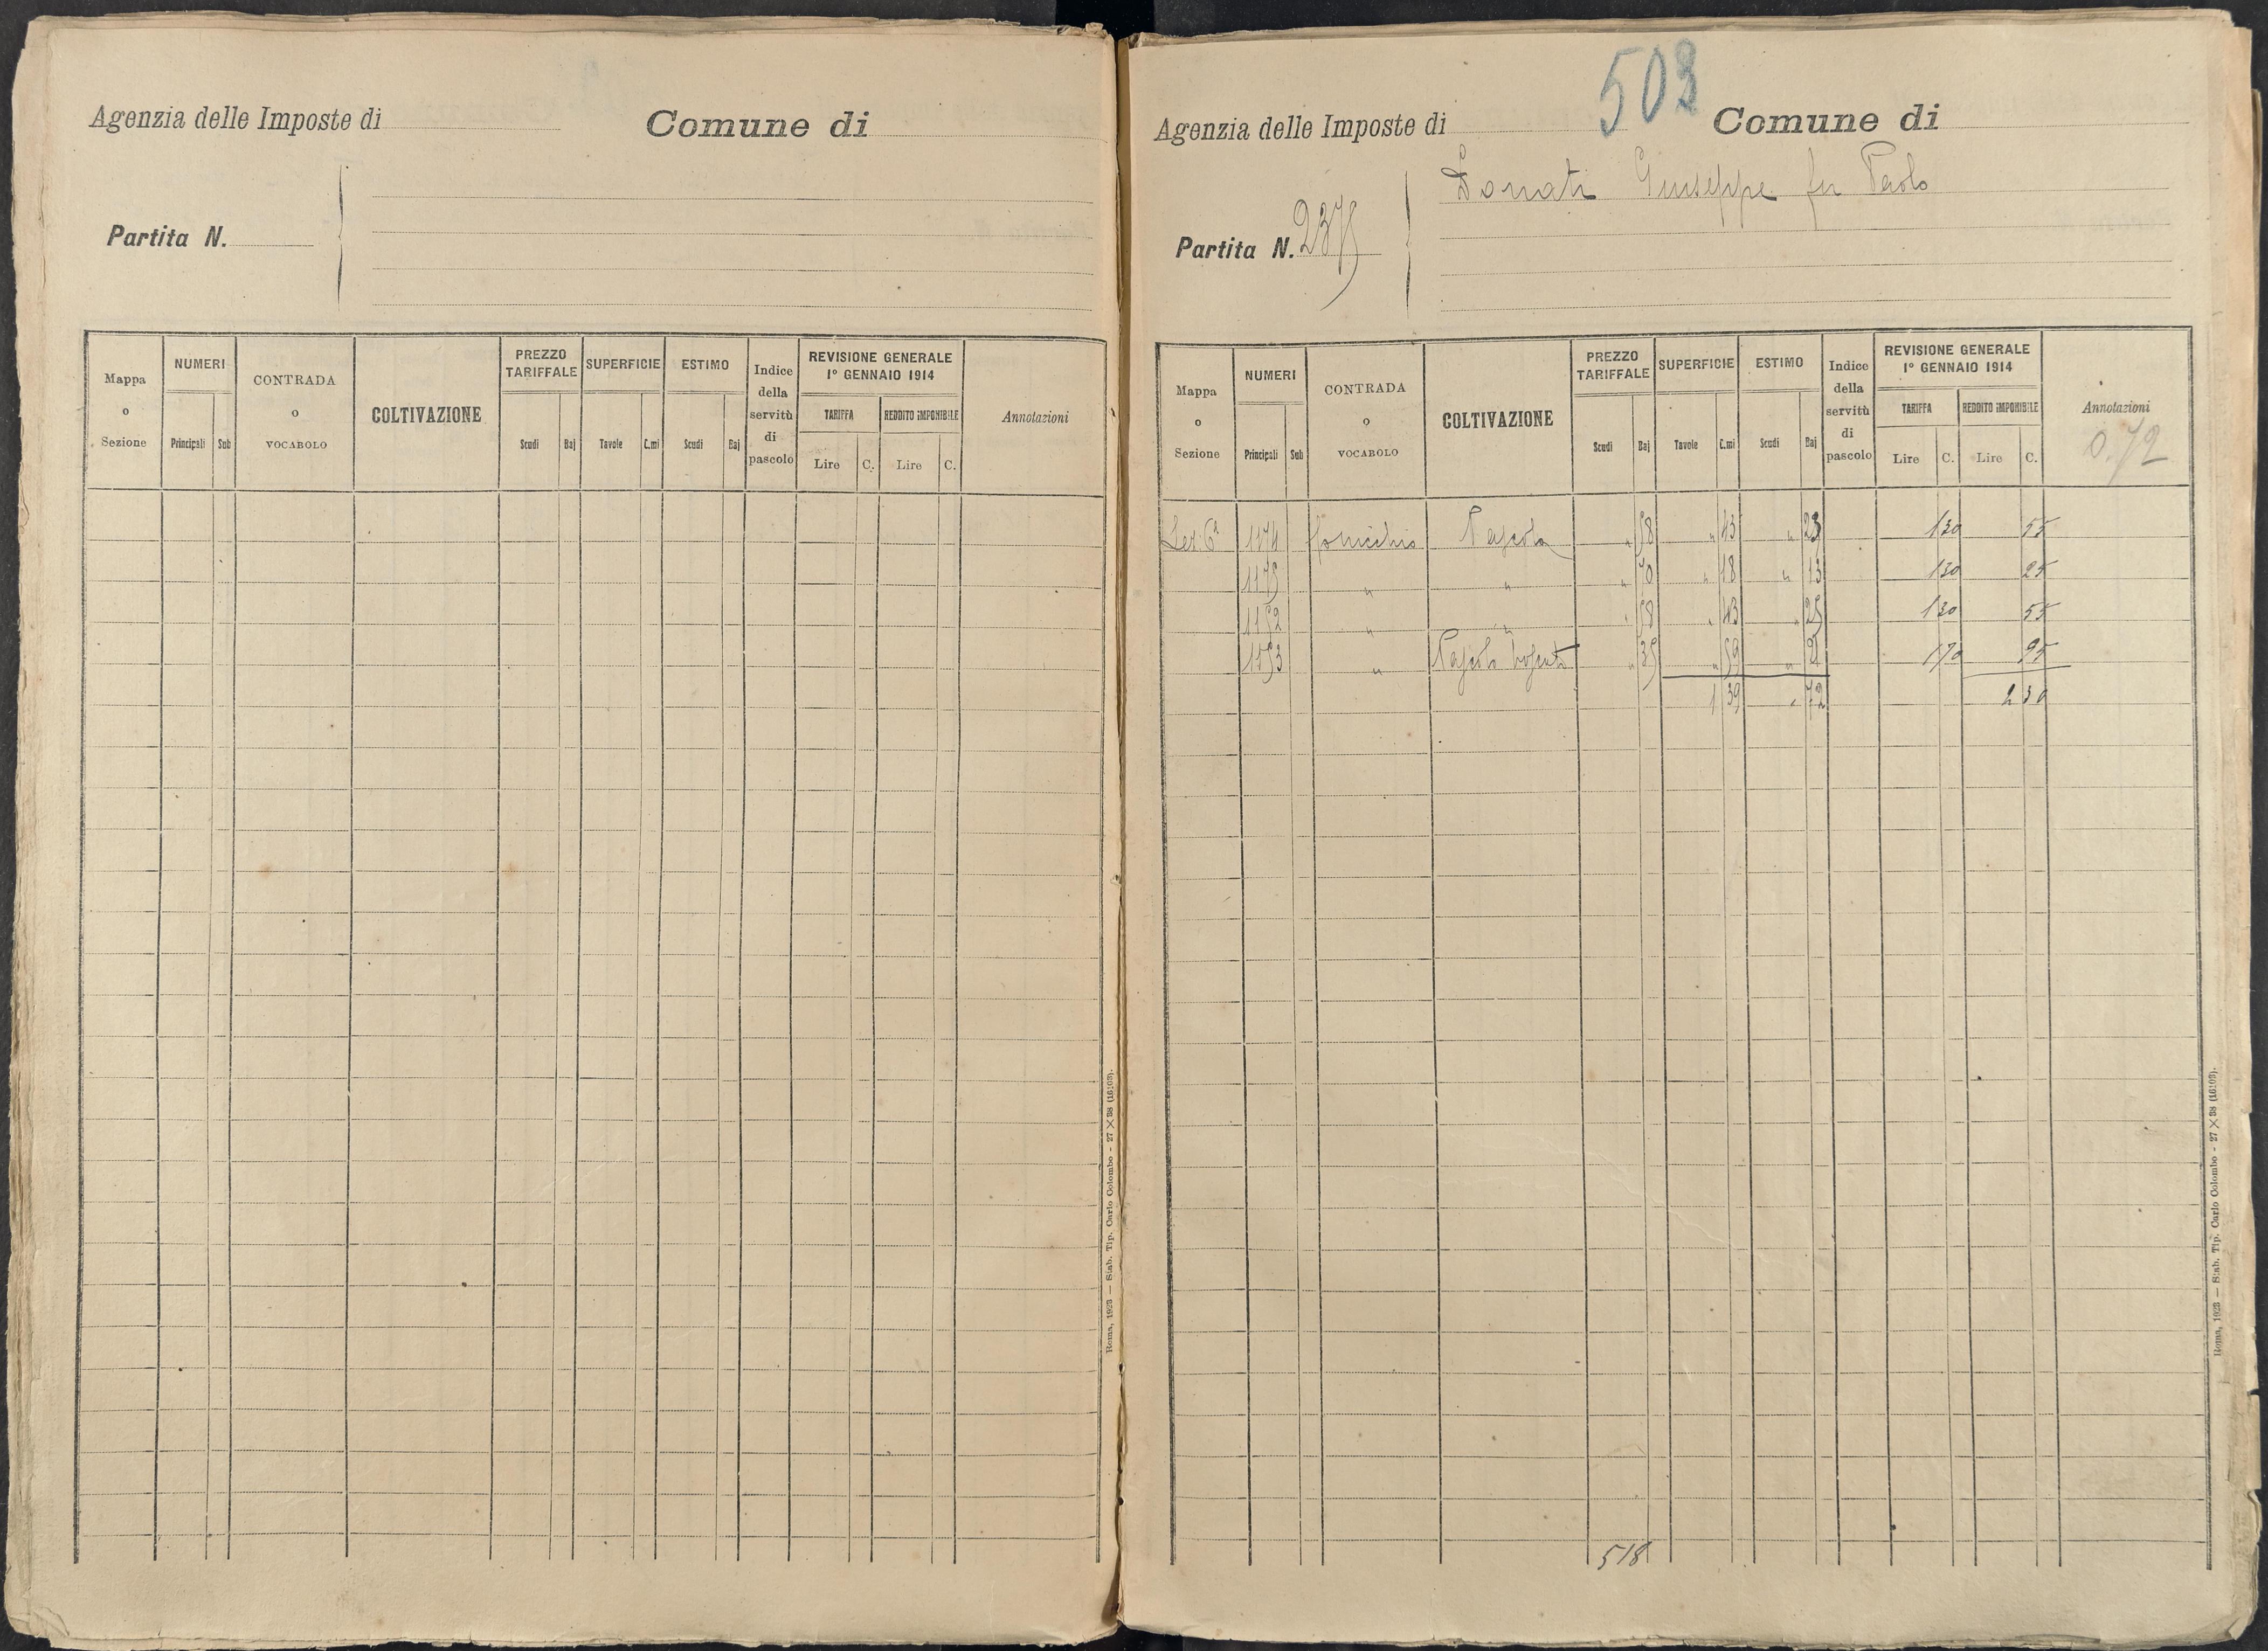 Agenzia delle Imposte di
Comune di
Partita N.
Mappa o Sezione
NUMERI
Principali
Sub
CONTRADA o VOCABOLO
COLTIVAZIONE
PREZZO TARIFFALE
Scudi
Baj
SUPERFICIE
Tavole
C.mi
ESTIMO
Scudi
Baj
Indice della servitù di pascolo
REVISIONE GENERALE
1º GENNAIO 1914
TARIFFA
REDDITO IMPONIBILE
Lire
C.
Lire
C.
Annotazioni
Roma, 1923 — Stab. Tip. Carlo Colombo - 27 × 38 (16103).
503
Agenzia delle Imposte di
Comune di
Donati Giuseppe fu Paolo
Partita N. 2375
Mappa o Sezione
NUMERI
Principali
Sub
CONTRADA o VOCABOLO
COLTIVAZIONE
PREZZO TARIFFALE
Scudi
Baj
SUPERFICIE
Tavole
C.mi
ESTIMO
Scudi
Baj
Indice della servitù di pascolo
REVISIONE GENERALE
1º GENNAIO 1914
TARIFFA
REDDITO IMPONIBILE
Lire
C.
Lire
C.
Annotazioni
0.72
Sez. 6ª 1174 Pascolo " 58 " 43 " 23 1 30 55
1175 " " " 70 " 18 " 13 1 30 25
1152 " " " 58 " 43 " 25 1 30 55
1153 " Pascolo boscato " 35 " 59 " 1 70 95
1 39 " 72 2 30
518
Roma, 1923 — Stab. Tip. Carlo Colombo - 27 × 38 (16103).